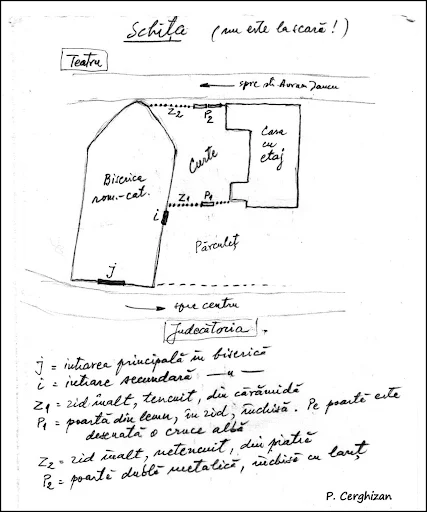 Schița (nu este la scară!)
Teatru
← spre str. Avram Iancu
Z2 P2
Casa
cu
etaj
Curte
Biserica
rom.-cat.
Z1 P1
i
Părculeț
j
→ spre centru
Judecătoria
j = intrarea principală în biserică
i = intrare secundară —〃—
Z1 = zid înalt, tencuit, din cărămidă
P1 = poartă din lemn, în zid, închisă. Pe poartă este
desenată o cruce albă
Z2 = zid înalt, netencuit, din piatră
P2 = poartă dublă metalică, închisă cu lanț
P. Cerghizan